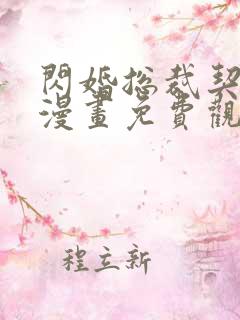 閃婚總裁契
漫畫免費觀
程立新